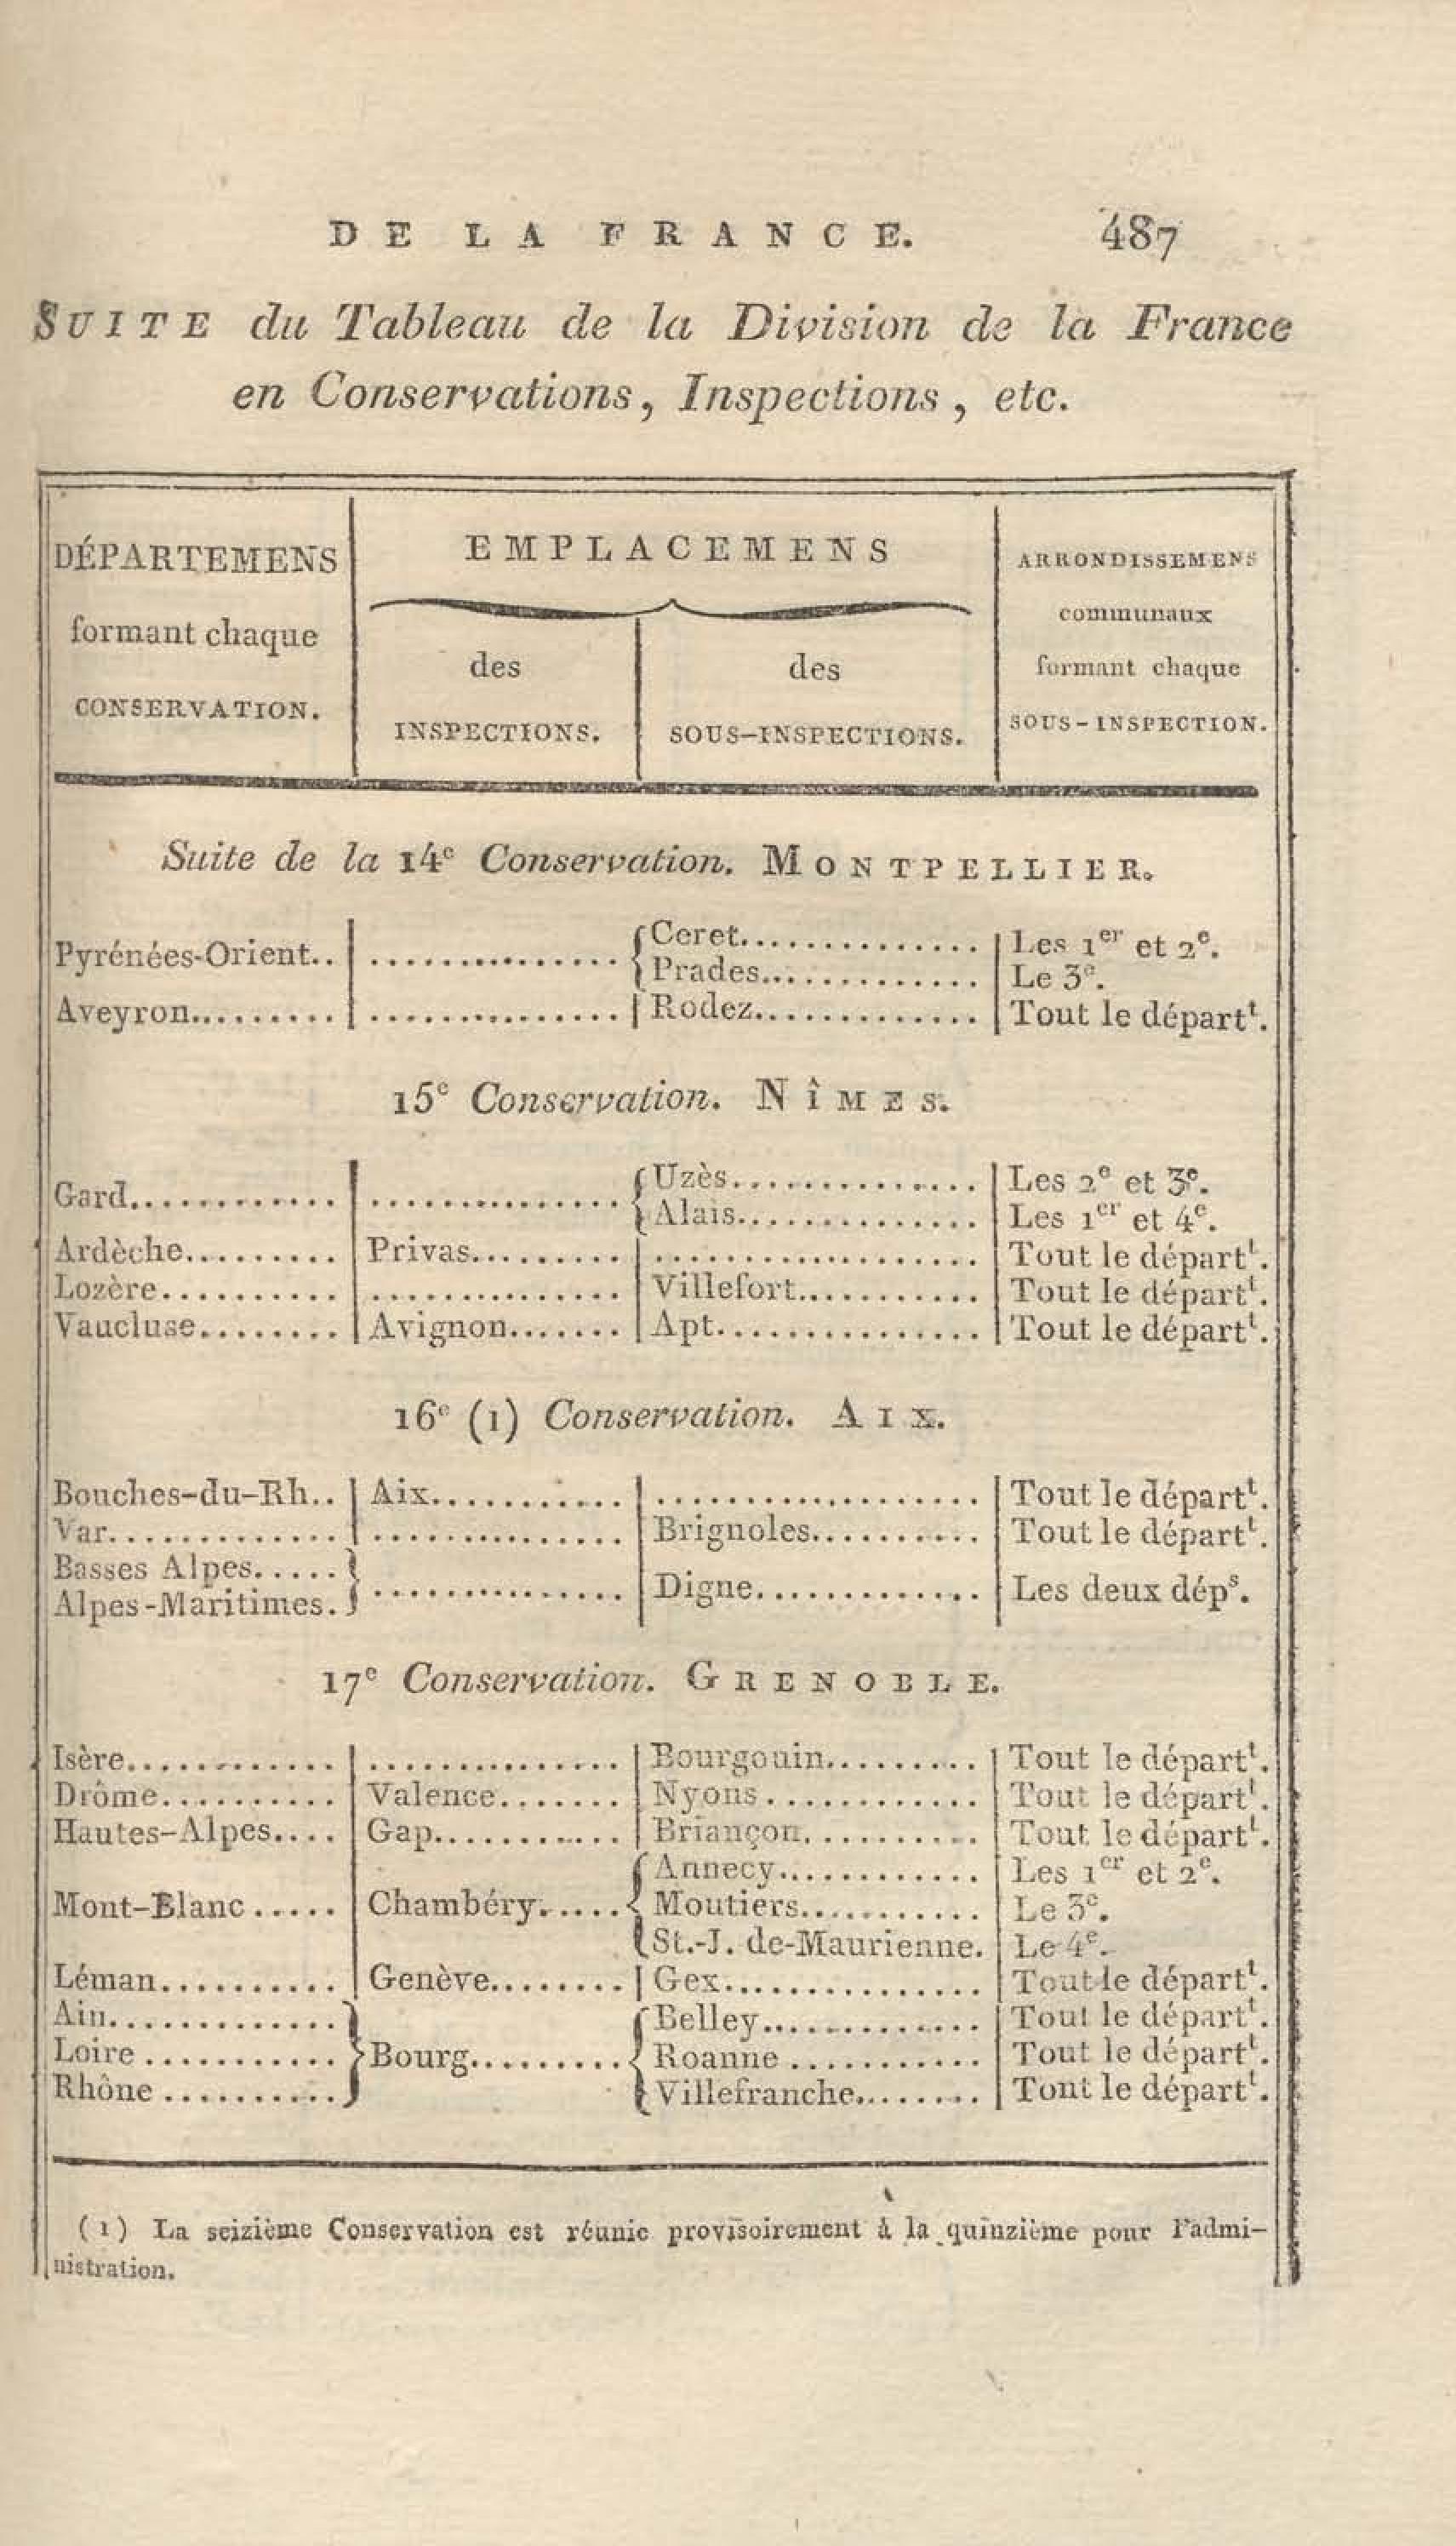 DE LA FRANCE. 487
SUITE du Tableau de la Division de la France
en Conservations, Inspections, etc.
DÉPARTEMENS
formant chaque
CONSERVATION.
EMPLACEMENS
des
INSPECTIONS.
des
SOUS-INSPECTIONS.
ARRONDISSEMENS
communaux
formant chaque
SOUS-INSPECTION.
Suite de la 14e Conservation. MONTPELLIER.
Pyrénées-Orient.. ............... { Ceret.............. Les 1er et 2e.
Prades............. Le 3e.
Aveyron......... ............... Rodez............. Tout le départt.
15e Conservation. NÎMES.
Gard............ ............... { Uzès.............. Les 2e et 3e.
Alais.............. Les 1er et 4e.
Ardèche......... Privas......... .................. Tout le départt.
Lozère.......... ............... Villefort........... Tout le départt.
Vaucluse........ Avignon....... Apt............... Tout le départt.
16e (1) Conservation. AIX.
Bouches-du-Rh.. Aix........... .................. Tout le départt.
Var............. ............... Brignoles.......... Tout le départt.
Basses Alpes..... }
Alpes-Maritimes. } ............... Digne............. Les deux déps.
17e Conservation. GRENOBLE.
Isère............ ............... Bourgouin......... Tout le départt.
Drôme.......... Valence....... Nyons ............ Tout le départt.
Hautes-Alpes.... Gap........... Briançon.......... Tout le départt.
{ Annecy............ Les 1er et 2e.
Mont-Blanc ..... Chambéry..... { Moutiers........... Le 3e.
{ St.-J. de-Maurienne. Le 4e.
Léman.......... Genève........ Gex............... Tout le départt.
Ain............. } { Belley............. Tout le départt.
Loire ........... } Bourg......... { Roanne ........... Tout le départt.
Rhône .......... } { Villefranche........ Tont le départt.
(1) La seizième Conservation est réunie provisoirement à la quinzième pour l'admi-
nistration.